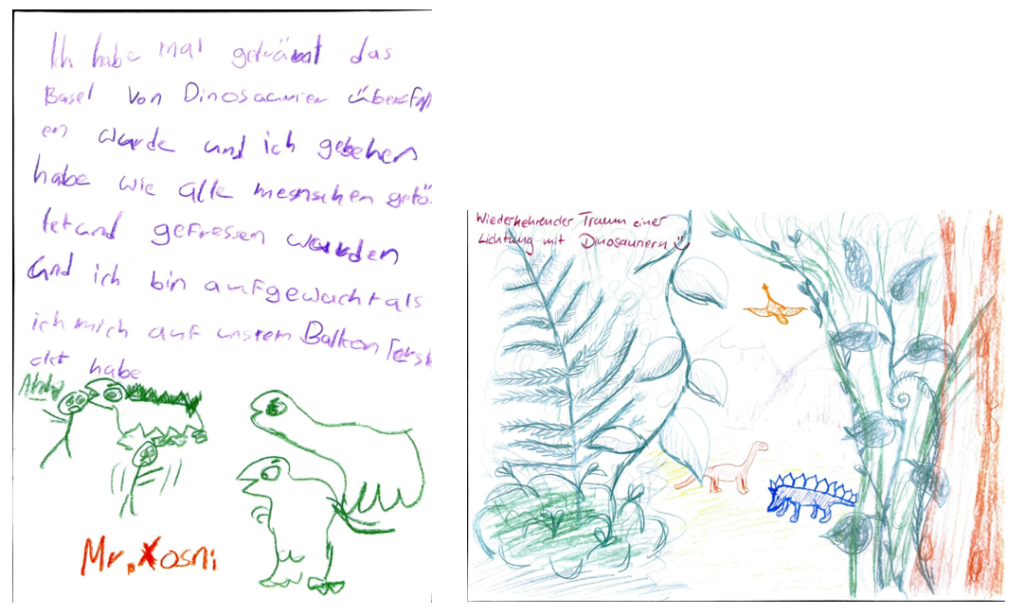 Ich habe mal geträumt das
Basel von Dinosaurier überfall
en wurde und ich gesehen
habe wie alle menschen getö
tet und gefressen wurden
und ich bin aufgewacht als
ich mich auf unsrem Balkon
ckt habe
Ahhh
Mr. Xosni
Wiederkehrender Traum einer
Lichtung mit Dinosauriern